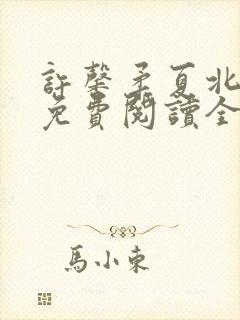 許馨矛夏北
免費閱讀全
馬小東